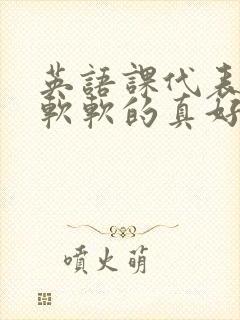 英語課代表
軟軟的真好
噴火萌